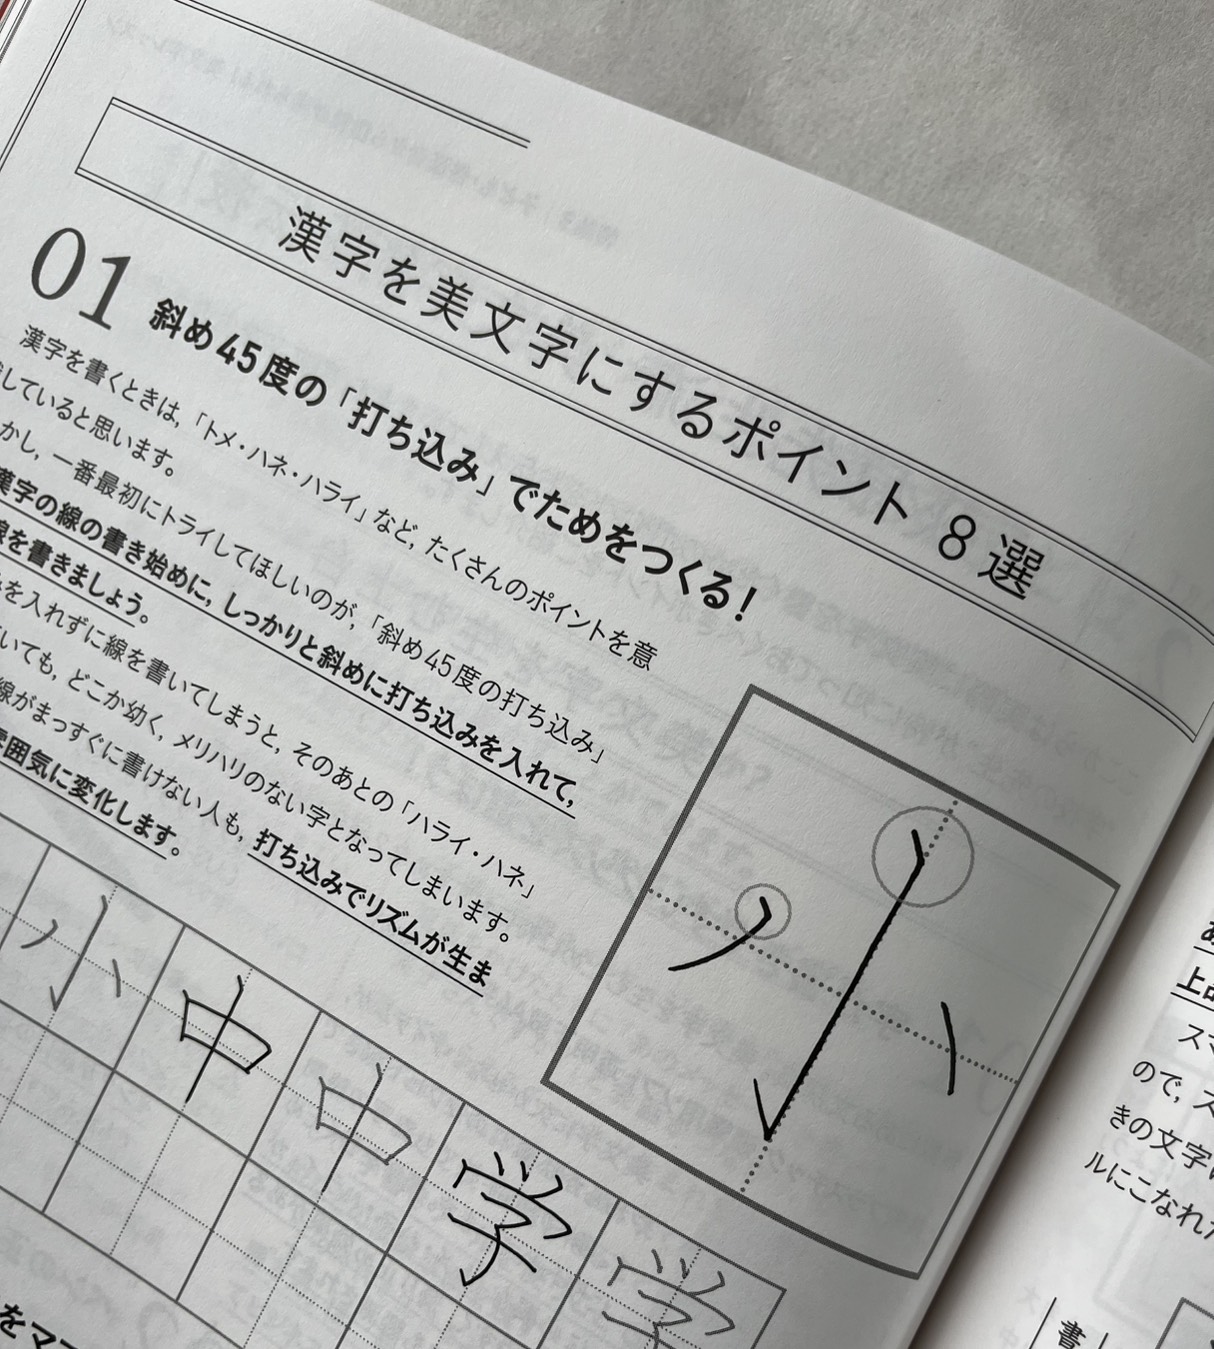 漢字を美文字にするポイント 8選
01 斜め45度の「打ち込み」でためをつくる！
漢字を書くときは，「トメ・ハネ・ハライ」など，たくさんのポイントを意
していると思います。
かし，一番最初にトライしてほしいのが，「斜め45度の打ち込み」
漢字の線の書き始めに，しっかりと斜めに打ち込みを入れて，
線を書きましょう。
を入れずに線を書いてしまうと，そのあとの「ハライ・ハネ」
いても，どこか幼く，メリハリのない字となってしまいます。
線がまっすぐに書けない人も，打ち込みでリズムが生ま
囲気に変化します。
小
小 中 中 学 学
をマ
上
スマ
ので，ス
きの文字
ルにこなれ
書